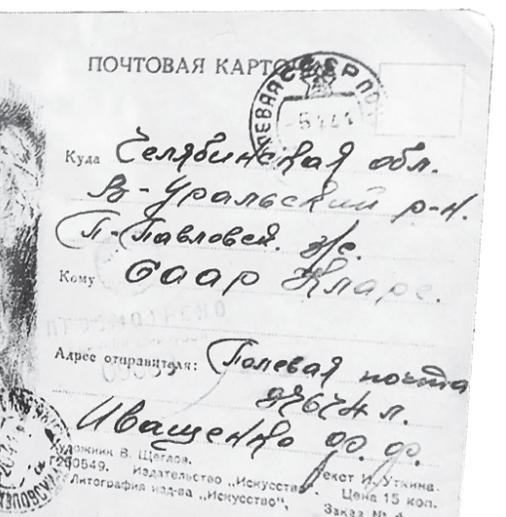 ПОЧТОВАЯ КАРТО
Куда Челябинская обл.
В-Уральский р-н.
П-Павловск.
Кому Саар Кларе.
Адрес отправителя: Полевая почта
Иващенко Ф. Ф.
удожник В. Щеглов. Текст И. Уткина.
Издательство „Искусство". Цена 15 коп.
Литография изд-ва „Искусство", Заказ №